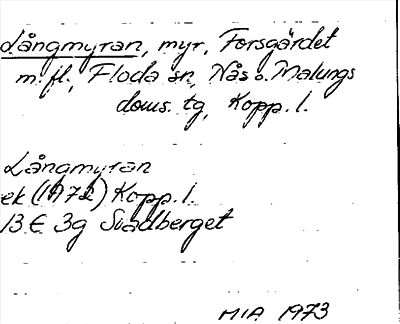 Långmyran, myr, Forsgärdet
m. fl., Floda sn, Nås o. Malungs
doms. tg, Kopp. l.
Långmyran
ek (1972) Kopp. l.
13 E 3g Snadberget
MIA 1973